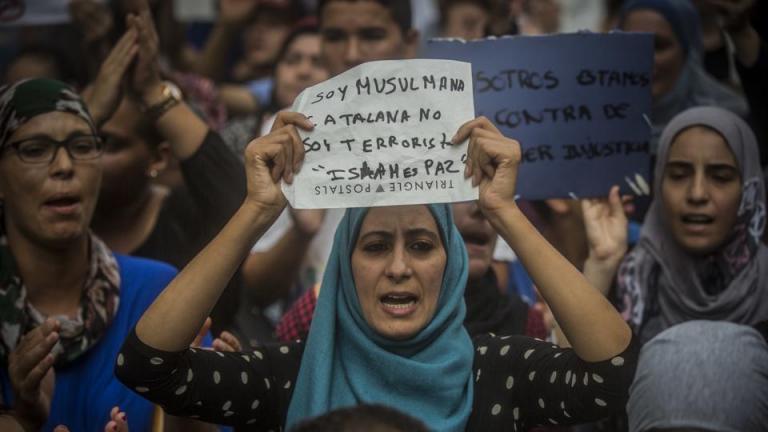 SOY MUSULMANA
CATALANA NO
SOY TERRORIST
"ISLAM ES PAZ"
TRIANGLE▼POSTALS
NOSOTROS ESTAMOS
CONTRA DE
INJUSTICIA